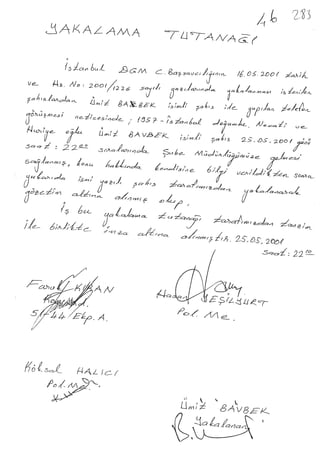 46 283
YAKALAMA TUTANAĞI
İstanbul DGM C.Başsavcılığının 16.05.2001 tarih
ve Hz. No: 2001/1226 sayılı yazılarında yakalanması istenilen
şahıslardan Ümit BAVBEK isimli şahıs ile yapılan telefon
görüşmesi neticesinde; 1957-İstanbul doğumlu, Nevati ve
Huriye oğlu Ümit BAVBEK isimli şahıs 25.05.2001 günü
saat: 22 sıralarında Şube Müdürlüğümüze gelmesi
sağlanmış, konu hakkında kendisine bilgi verildikten sonra
yukarıda ismi yazılı şahıs tarafımızdan yakalanarak
gözetim altına alınmış olup.
İş bu yakalama tutanağı tarafımızdan tanzim
ile birlikte imza altına alınmıştır. 25.05.2001
saat: 22
Faruk
Hasan YEŞİLYURT
Ekp. A.
Pol. Me.
Köksal HALICI
Pol. Me.
Ümit BAVBEK
Yakalanan